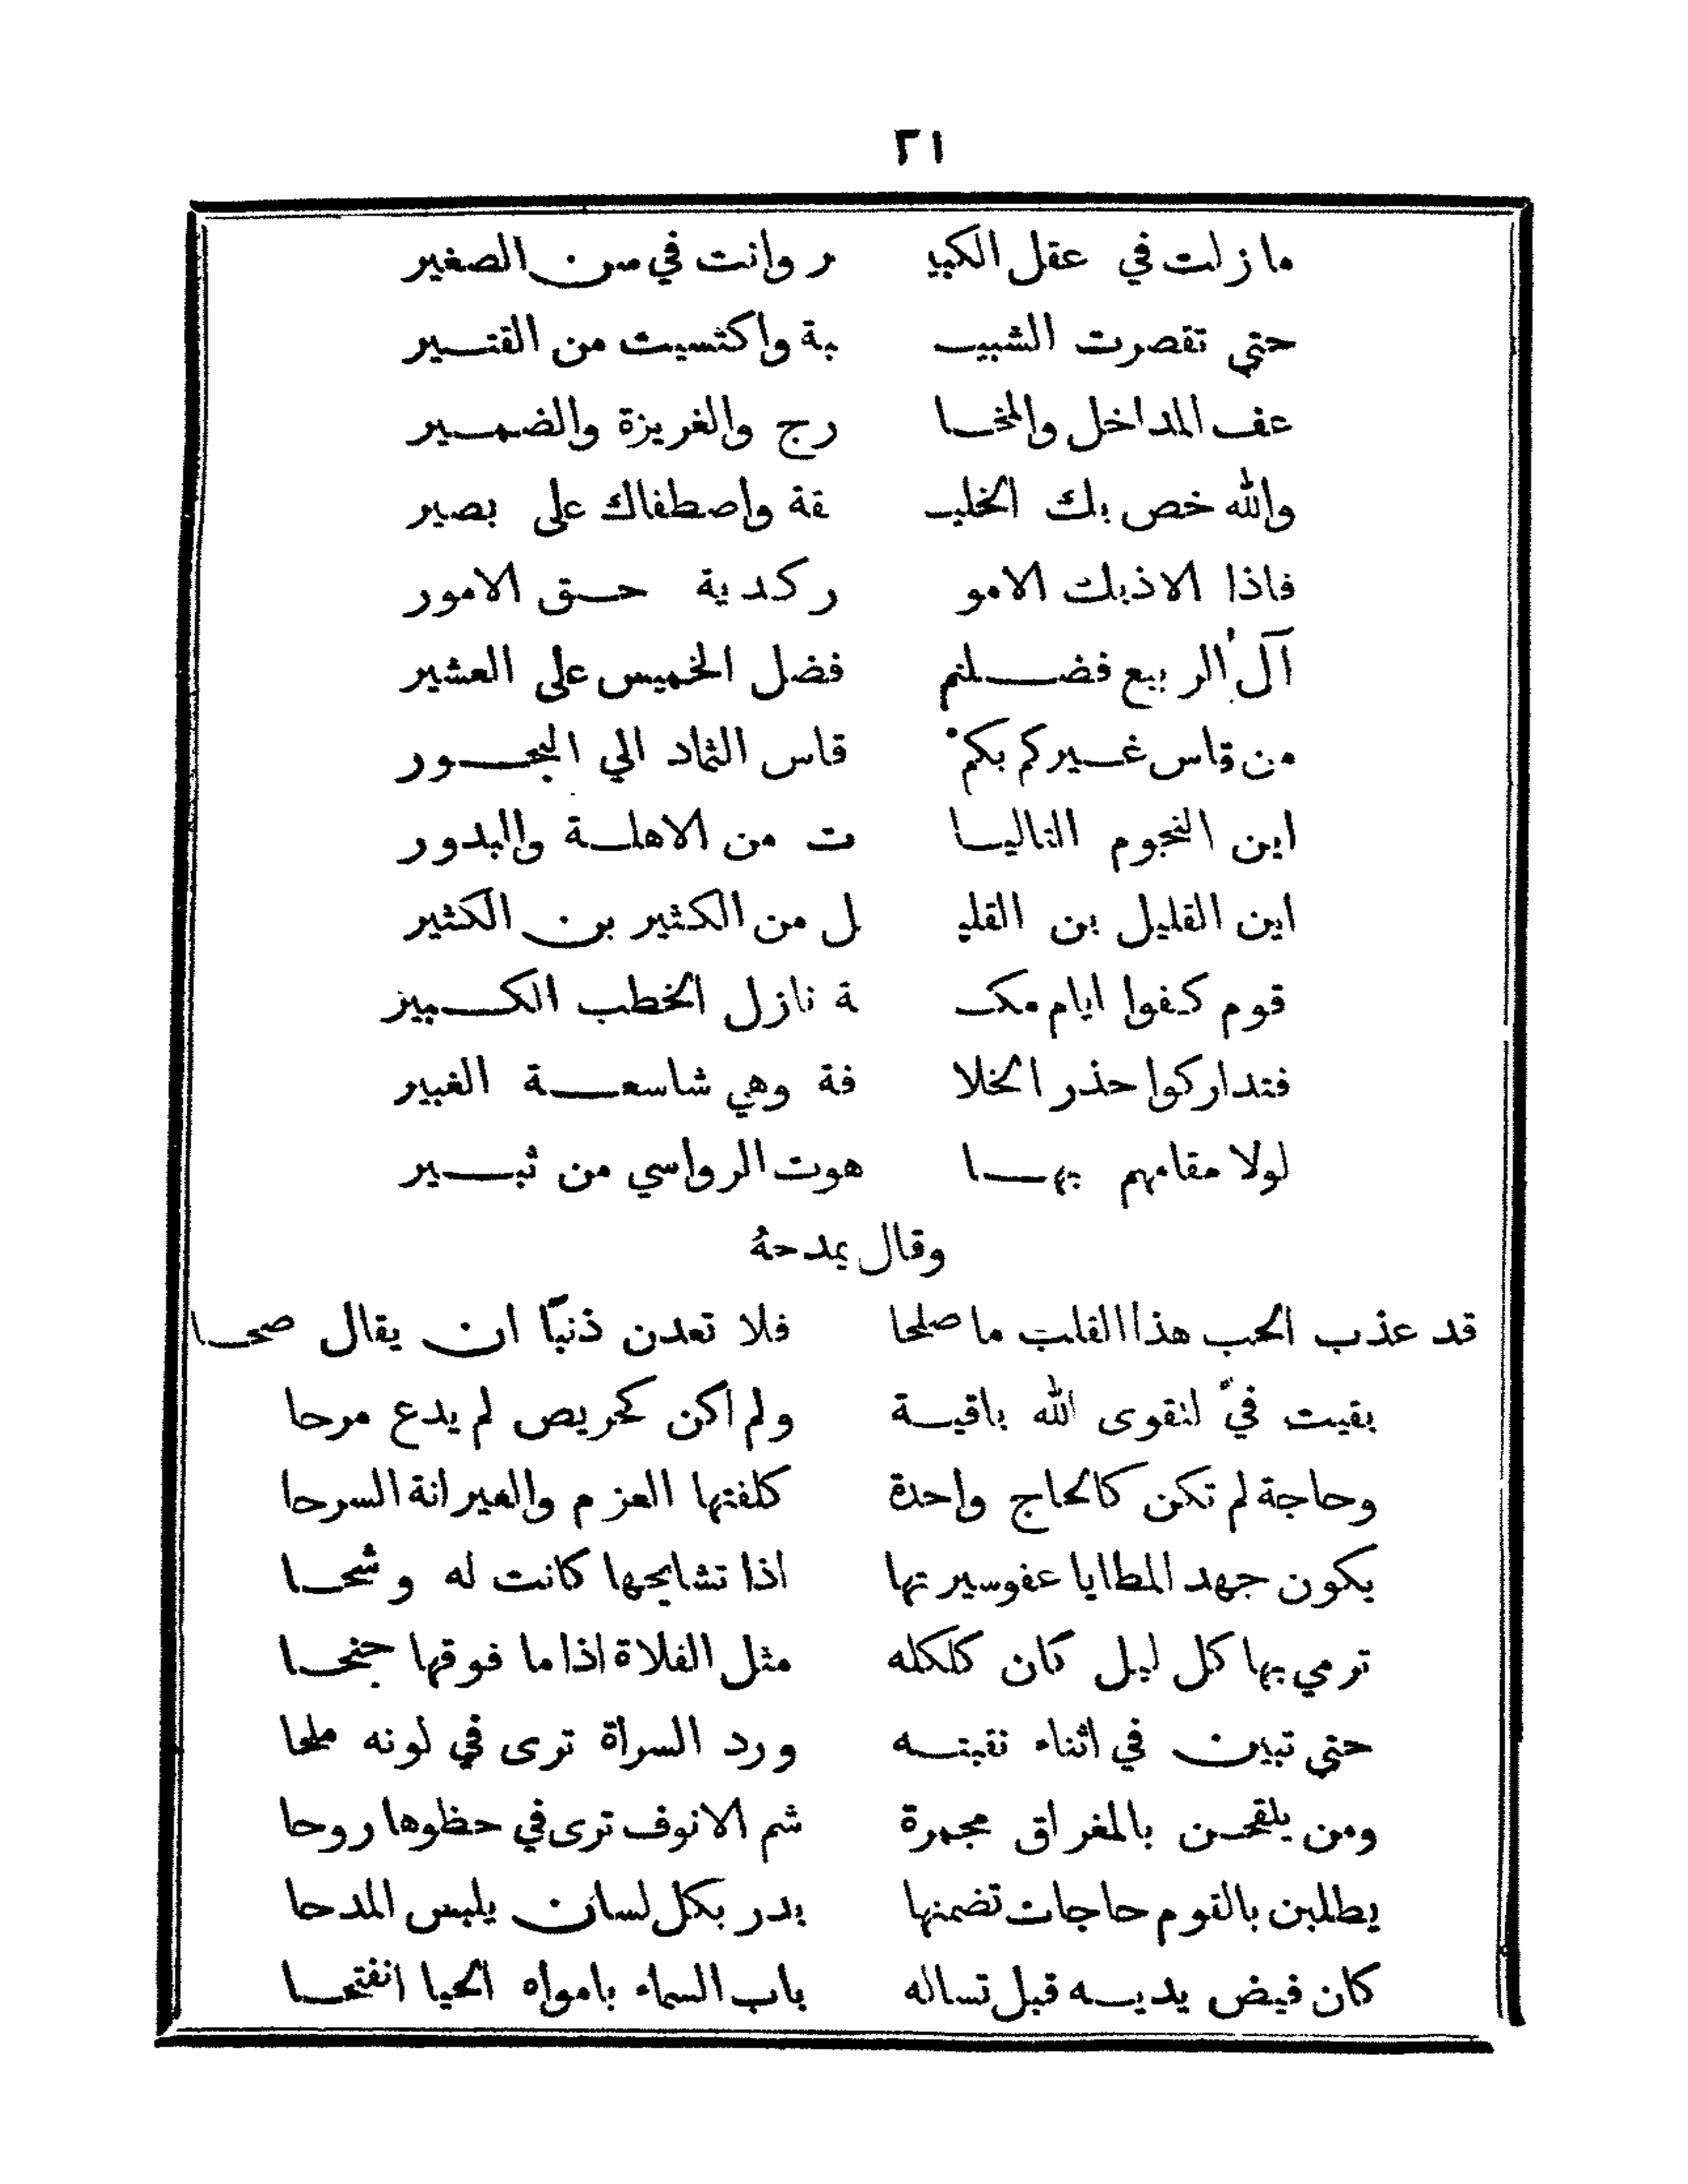 ٢١
ما زلت في عقل الكبيـ ر وانت في سن الصغير
حتي تقصرت الشبيبـ بة واكتسيت من القتير
عف المداخل والمخا رج والغريزة والضمير
والله خص بك الخليـ فة واصطفاك على بصير
فاذا الاذبك الامو ر كدية حق الامور
آل الربيع فضلتم فضل الخميس على العشير
من قاس غيركم بكم قاس الثماد الي البحور
اين النجوم التاليا ت من الاهلة والبدور
اين القليل بن القليـ ل من الكثير بن الكثير
قوم كفوا ايام مكـ ة نازل الخطب الكبيز
فتداركوا حذر الخلا فة وهي شاسعة الغبير
لولا مقامهم بها هوت الرواسي من ثبير
وقال يمدحهُ
قد عذب الحب هذا القلب ما صلحا فلا تعدن ذنبًا ان يقال صحا
بقيت فيّ لتقوى الله باقية ولم اكن كحريص لم يدع مرحا
وحاجة لم تكن كالحاج واحدة كلفتها العزم والعيرانة السرحا
يكون جهد المطايا عفوسيرتها اذا تشابحها كانت له وشحا
ترمي بها كل ليل كان كلكله مثل الفلاة اذا ما فوقها جنحا
حتي تبين في اثناء نقبته ورد السراة ترى في لونه ملحا
ومن يلقحن بالمغراق مجمرة شم الانوف ترى في حظوها روحا
يطلبن بالقوم حاجات تضمنها بدر بكل لسان يلبس المدحا
كان فيض يديه قبل تساله باب السماء بامواه الحيا انفتحا